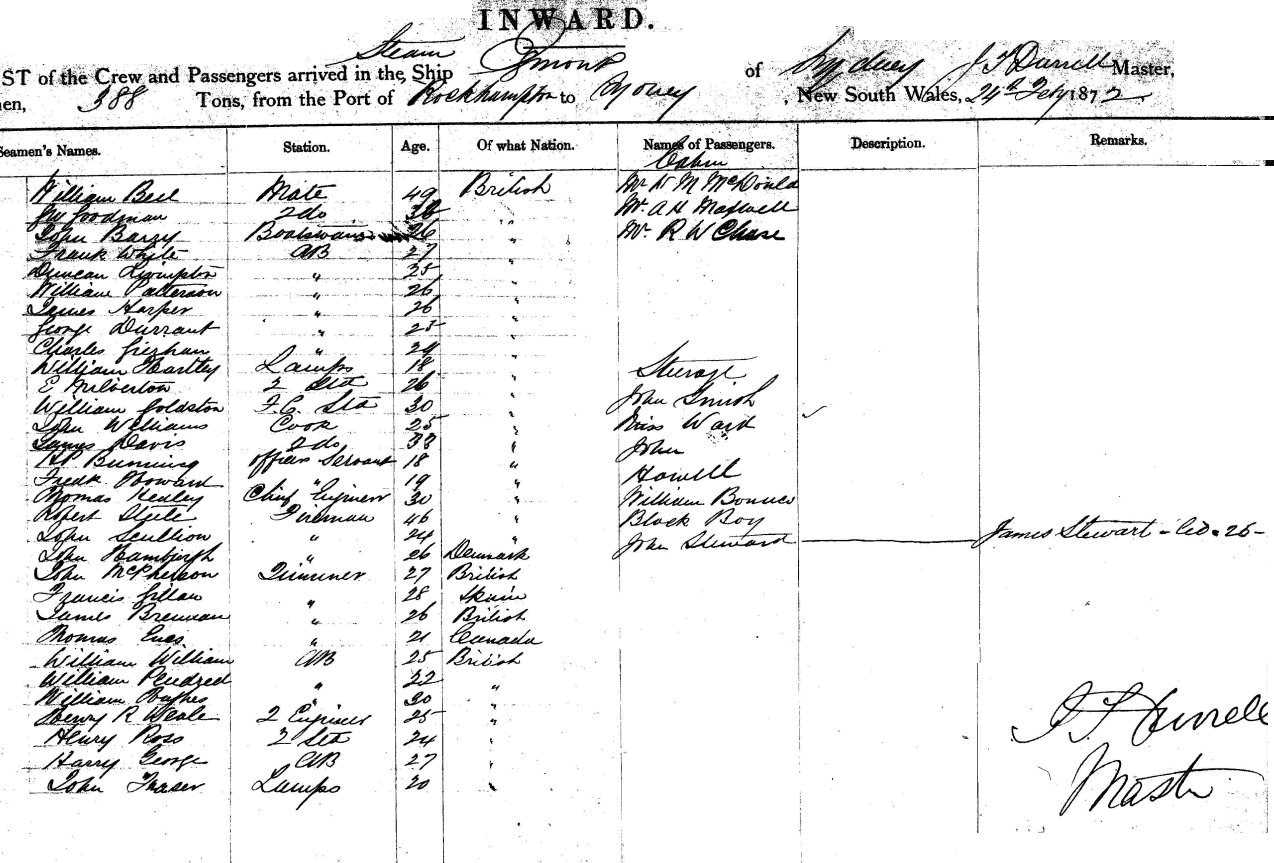 INWARD.
Steam
ST of the Crew and Passengers arrived in the Ship Egmont of Sydney J T Durrell Master,
men, 388 Tons, from the Port of Rockhampton to Sydney, New South Wales, 24th Feby 1872.
Seamen's Names. Station. Age. Of what Nation. Names of Passengers. Description. Remarks.
Cabin
William Bell Mate 49 British Mr McDonald
J W Goodman 2 do 36 " Mr A H Maxwell
John Barry Boatswain 26 " Mr R W Chase
Frank White AB 27 "
Duncan 25 "
William Patterson " 26 "
James Harper " 26 "
George Durrant " 25 "
Charles " 29 "
William Hartley Lamps 18 " Steerage
E Milverton 2 Std 26 "
William Goldston F.C. Std 30 " John Smith
John Williams Cook 25 " Miss Ward
James Davis 2 do 33 " John
H P Bunning officers Servant 18 "
Fredk Howard " 19 " Howell
Thomas Healey Chief Engineer 30 " William
Robert Steele Fireman 46 " Black Boy
John Scullion " 24 " John Steward James Stewart - 26 -
John " 26 Denmark
John McPherson Trimmer 27 British
Francis Gillan " 28 Spain
James Brennan " 26 British
Thomas " 21 Canada
William William AB 25 British
William Pendred " 22 "
William Hughes " 30 "
Henry R Weale 2 Engineer 25 "
Henry Ross 2 Std 24 "
Harry George AB 27 "
John Fraser Lamps 20 "
J T Durrell
Master